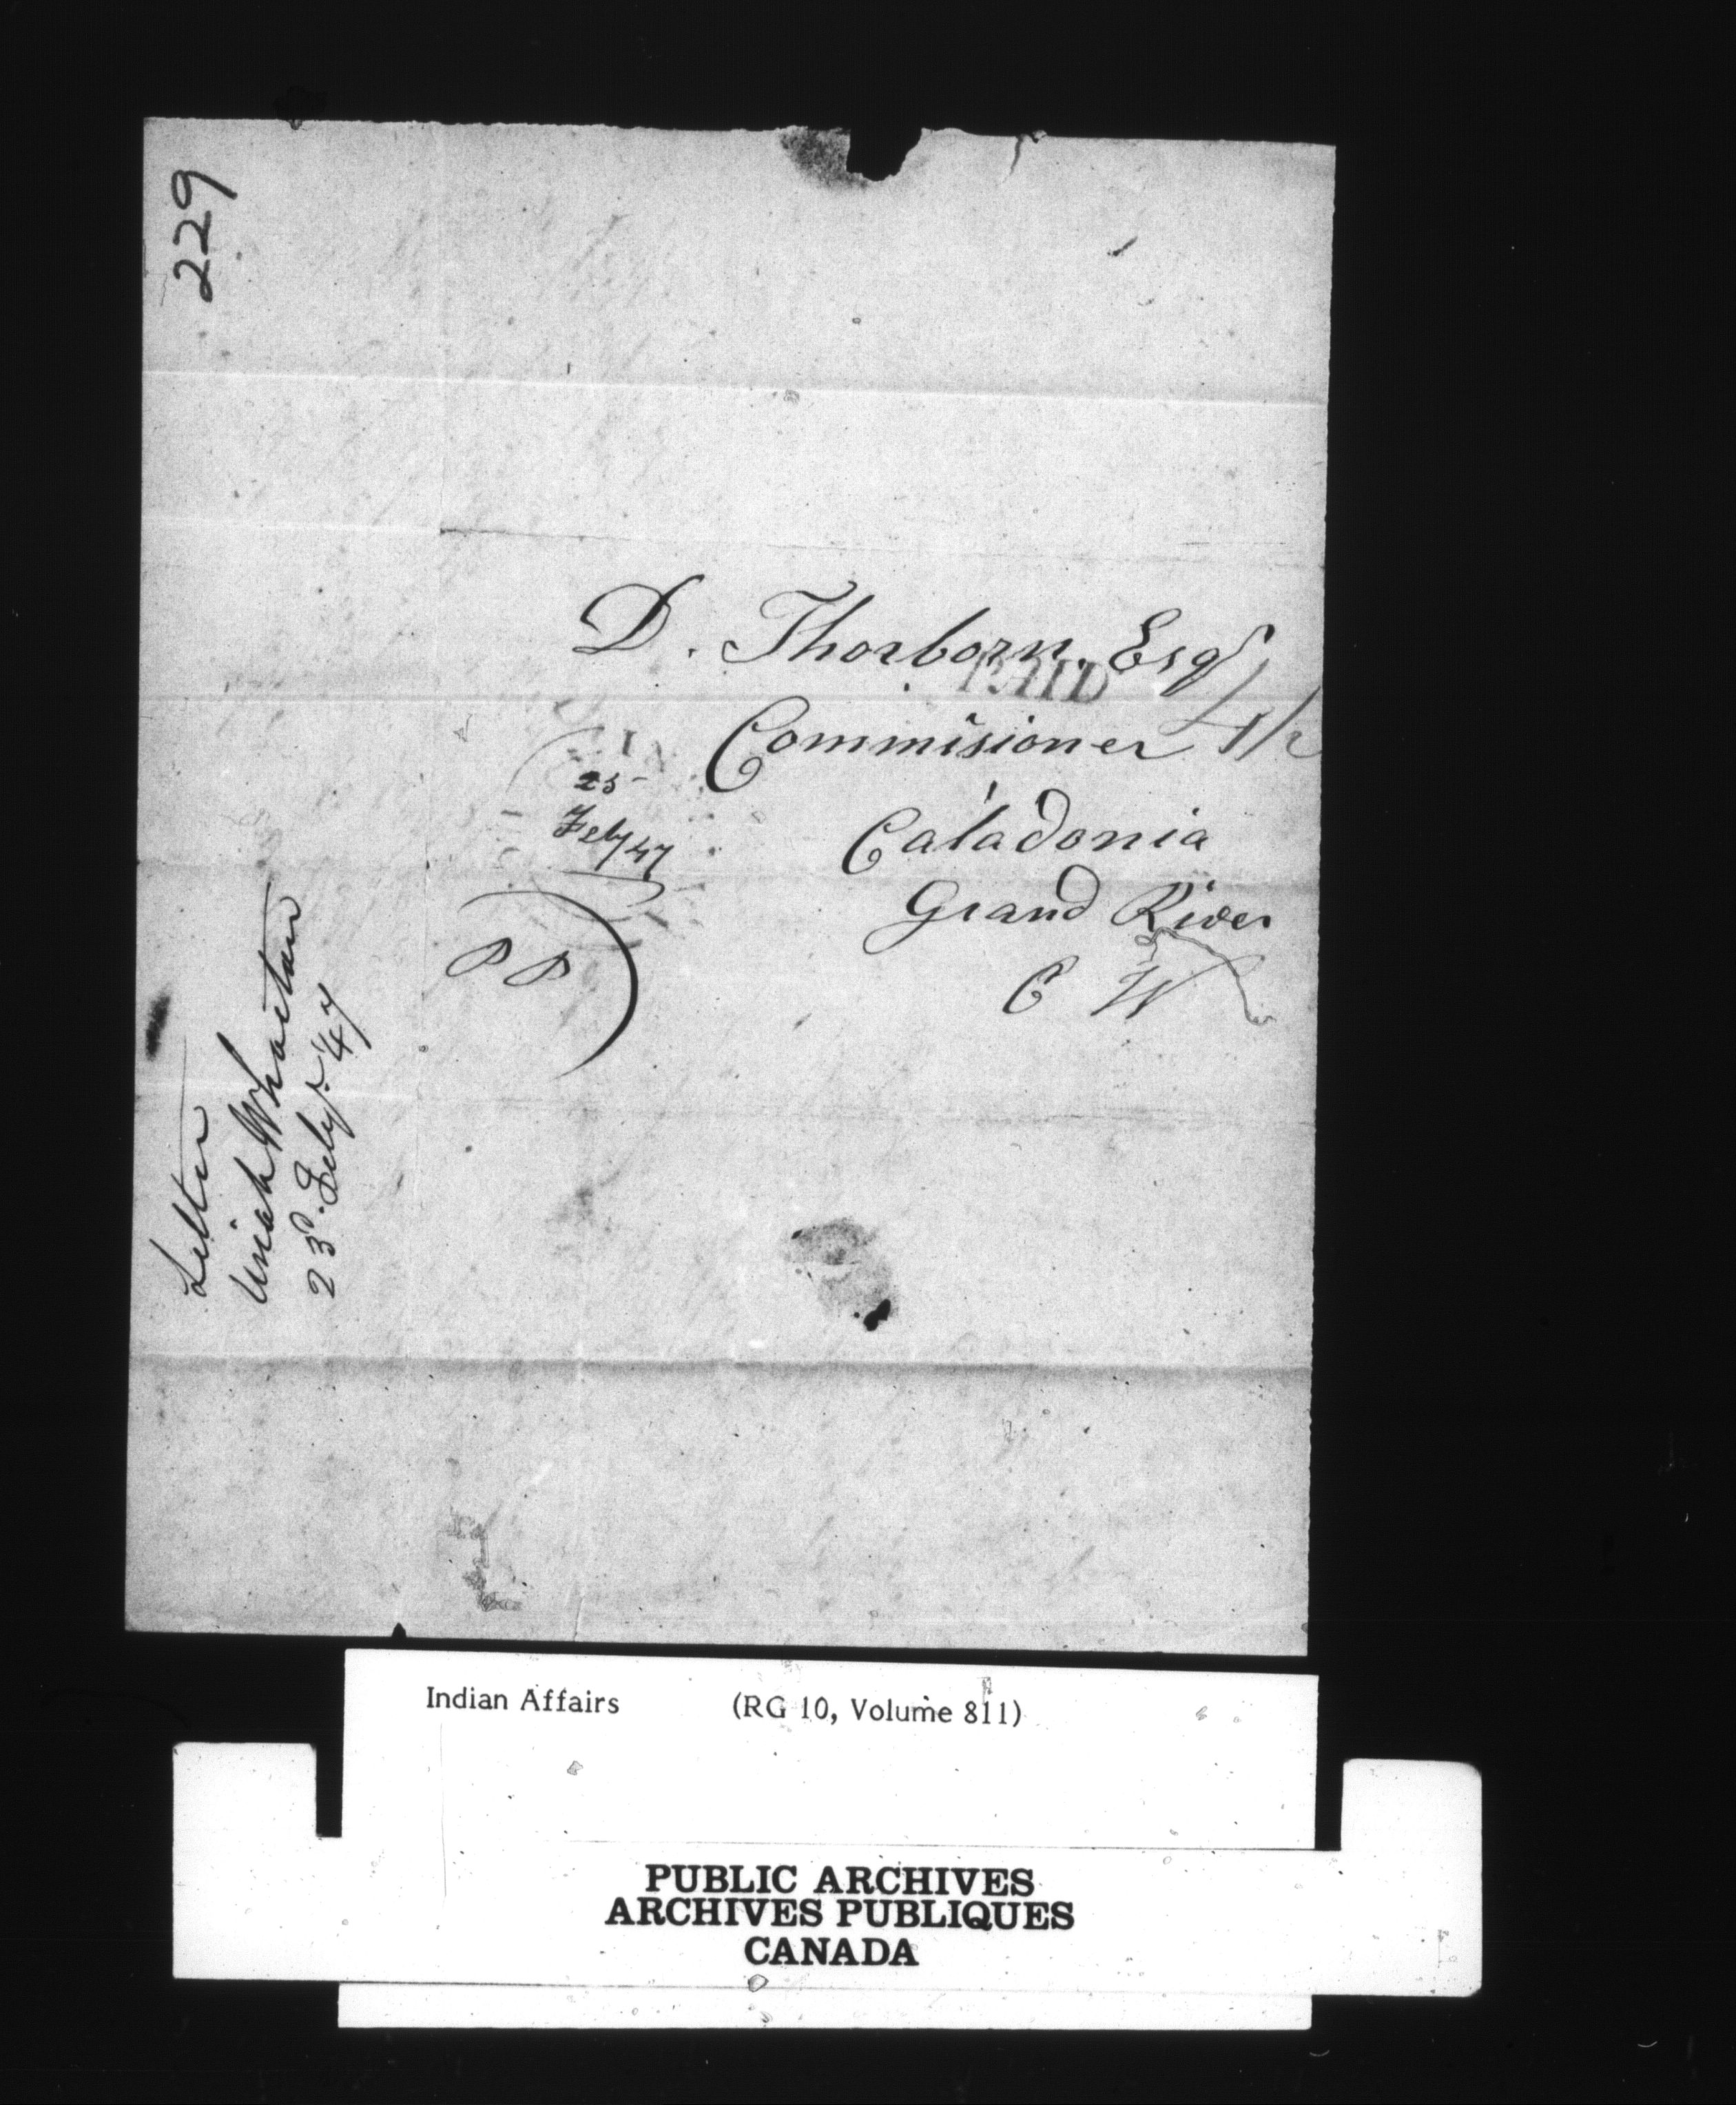 229
D. Thorborn. Esqr
PAID
Commisioner
25
Feby 47
Caladonia
Grand River
C W
P P
Letter
Uriah Wharton
23d. Feby. 47
Indian Affairs (RG 10, Volume 811)
PUBLIC ARCHIVES
ARCHIVES PUBLIQUES
CANADA